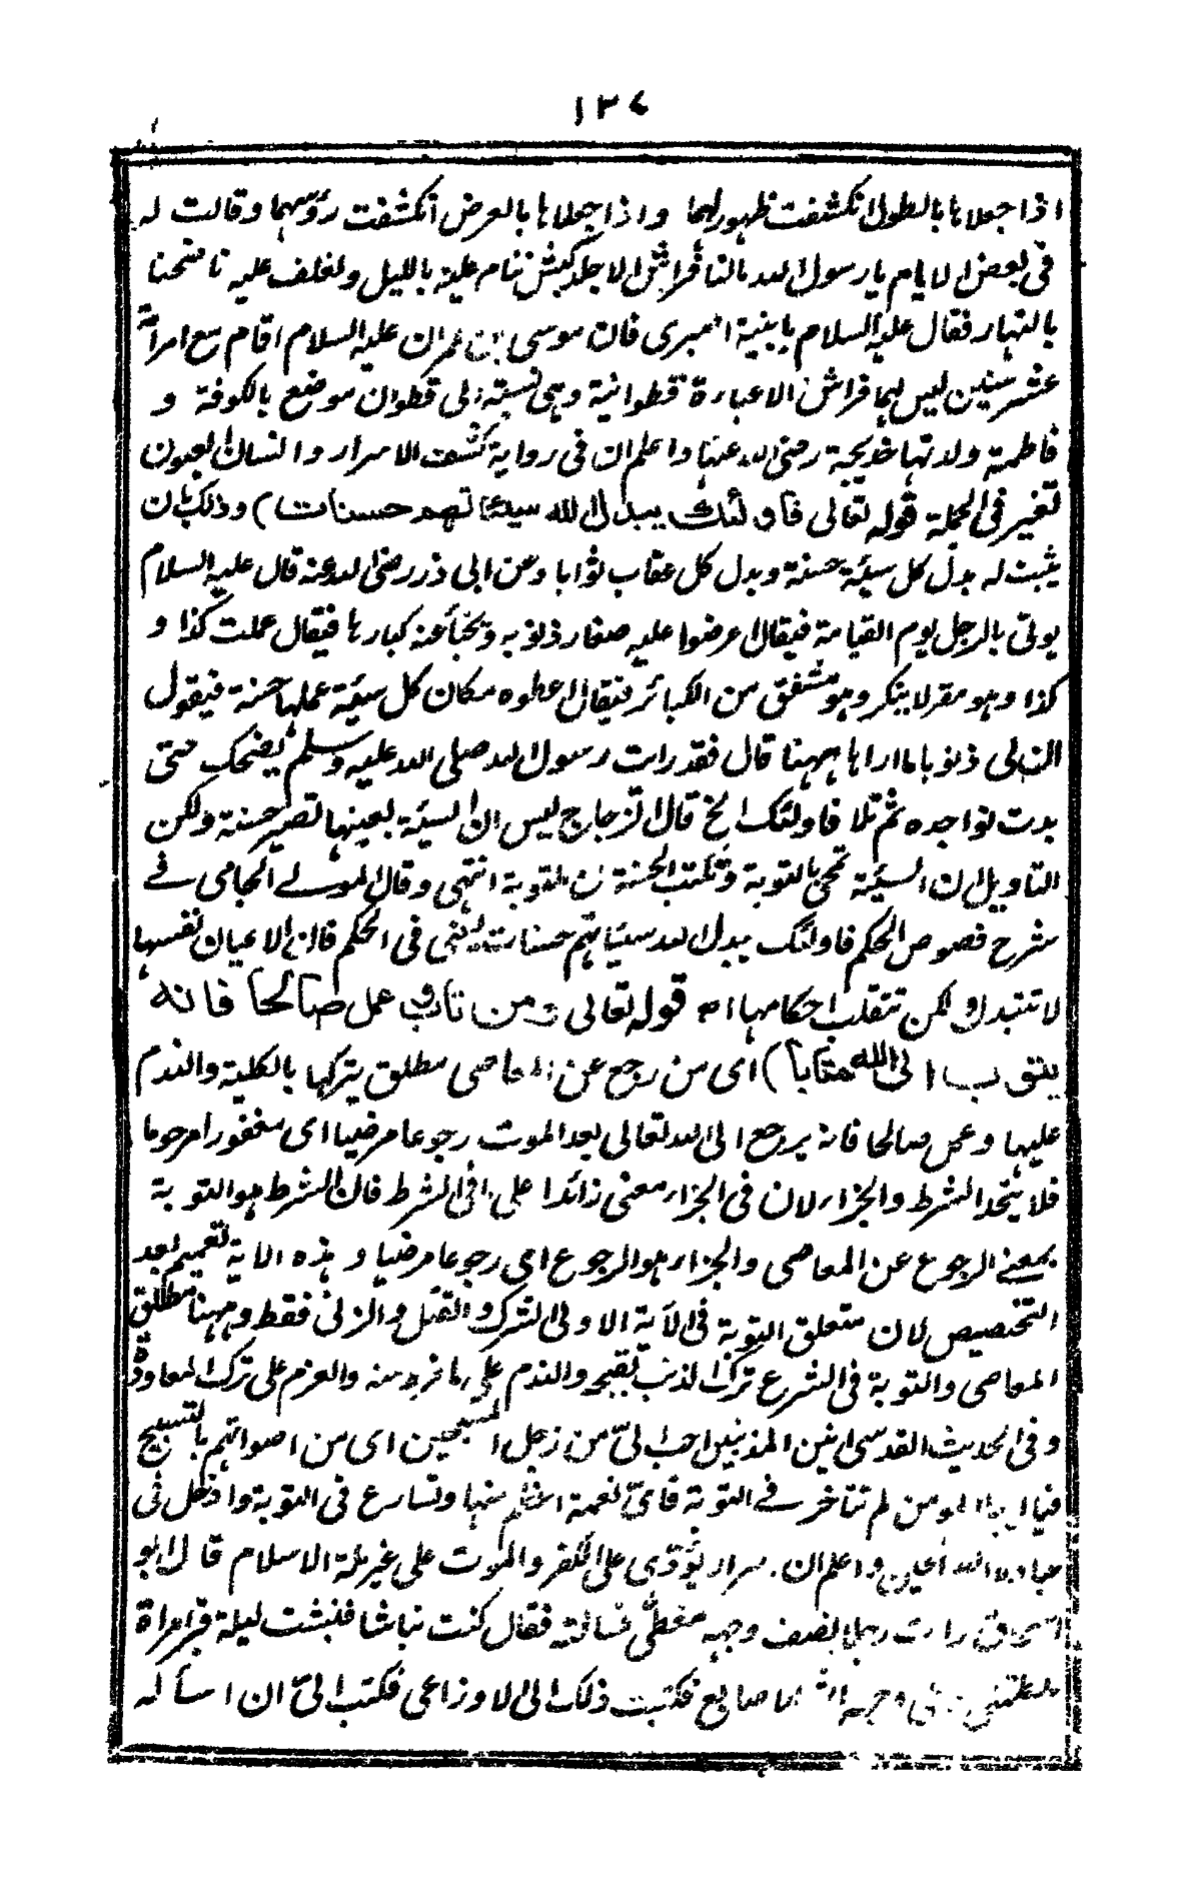 ١٣٤
اذا جعلاها بالطول انكشفت ظهورهما واذا جعلاها بالعرض انكشفت رؤسهما وقالت له
فى بعض الايام يا رسول الله مالنا فراش الا جلد كبش ننام عليه بالليل ونعلف عليه ناضحنا
بالنهار فقال عليه السلام يا بنية اصبرى فان موسى بن عمران عليه السلام اقام مع امرأته
عشر سنين ليس لهما فراش الا عباءة قطوانية وهى نسبة الى قطوان موضع بالكوفة و
فاطمة ولدتها خديجة رضى الله عنها واعلم ان فى رواية كشف الاسرار وانسان العيون
تغير فى الجملة قوله تعالى فاولئك يبدل الله سيئاتهم حسنات) وذلك بان
يثبت له بدل كل سيئة حسنة وبدل كل عقاب ثوابا وعن ابى ذر رضى الله عنه قال عليه السلام
يوتى بالرجل يوم القيامة فيقال اعرضوا عليه صغار ذنوبه وتخبأ عنه كبارها فيقال عملت كذا و
كذا وهو مقر لا ينكر وهو مشفق من الكبائر فيقال اعطوه مكان كل سيئة عملها حسنة فيقول
ان لى ذنوبا ما اراها ههنا قال فقد رايت رسول الله صلى الله عليه وسلم يضحك حتى
بدت نواجده ثم تلا فاولئك الخ قال الزجاج ليس ان السيئة بعينها تصير حسنة ولكن
التاويل ان السيئة تمحى بالتوبة وتكتب الحسنة مع التوبة انتهى وقال المولى الجامى فے
شرح فصوص الحكم فاولئك يبدل الله سيئاتهم حسنات يعنى فى الحكم فان الاعيان نفسها
لا تتبدل ولكن تنقلب احكامها اه قوله تعالى ومن تاب وعمل صالحا فانه
يتوب الى الله متابا) اى من رجع عن المعاصى مطلق يتركها بالكلية والندم
عليها وعمل صالحا فانه يرجع الى الله تعالى بعد الموت رجوعا مرضيا اى مغفورا مرحوما
فلا يتحد الشرط والجزاء لان فى الجزاء معنى زائدا على ما فى الشرط فان الشرط هو التوبة
بمعنے الرجوع عن المعاصى والجزاء هو الرجوع اى رجوعا مرضيا وهذه الاية تعميم بعد
التخصيص لان متعلق التوبة فى الآية الاولى الشرك والقتل والزنى فقط وههنا مطلق
المعاصى والتوبة فى الشرع ترك الذنب لقبحه والندم على ما فرط منه والعزم على ترك المعاودة
وفى الحديث القدسى انين المذنبين احب الىّ من زجل المسبحين اى من اصواتهم بالتسبيح
فيا ايها المومن لم تتاخر فے التوبة فاىّ نعمة اعظم منها وتسارع فى التوبة وادخل فى
عباد الله واعلم ان يؤدى على الكفر والموت على غير ملة الاسلام قال ابو
اسحاق رايت رجلا نصف وجهه مغطى فسالته فقال كنت نباشا فنبشت ليلة قبر امراة
فلطمتنى وفى وجهه اثر الاصابع فكتبت ذلك الى الاوزاعى فكتب الىّ ان اساله